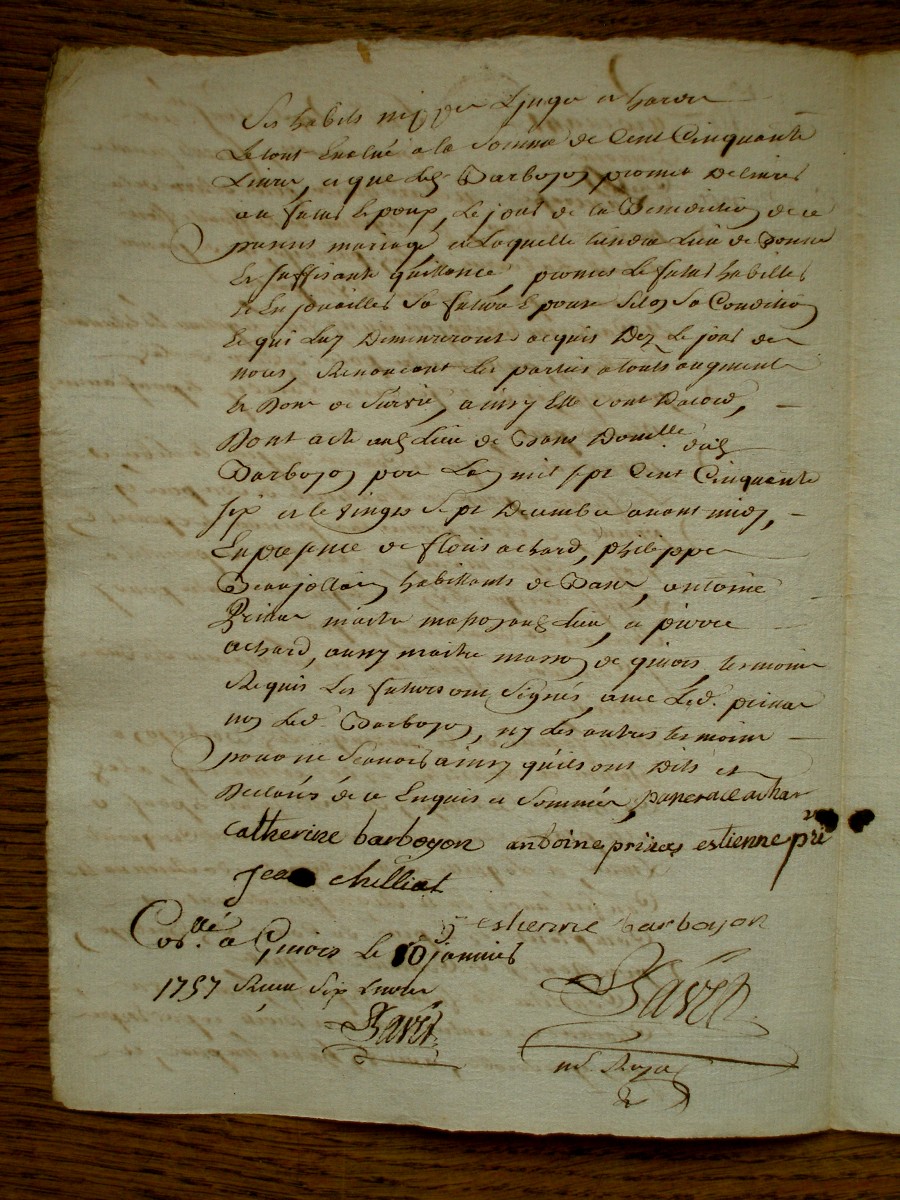 Ses habits nippes Linge et hardes
Le tout Evalué a la Somme de Cent Cinquante
Livres, et que led Barboyon promet delivrer
au futur Epoux, Le jour de la Benediction de ce
present mariage et Laquelle tiendra Lieu de Bonne
Et suffisante quittance, promet Le futur habiller
Et Enjoyailler Sa future Epouse Selon Sa Condition
Ce qui Luy Demeureront acquis Dez Le jour des
noces, Renonceant Les parties a touts augments
Et Dons de Survie, ainsy Elles sont Dacord, —
Dont acte aud Lieu de Domlle dud
Barboyon L'an mil sept Cent Cinquante
six et le vingt Sept Decembre avant midy, —
En presence de flouis achard, philippe
Beaujollain habittants de antoine
maitre masson aud Lieu, et pierre
achard, aussy maitre masson de temoins
Requis Les futurs ont Signés avec Led. —
non Led. Barboyon, ny Les autres temoins —
pour ne Scavoir ainsy qu'ils ont Dits et
Declarés de ce Enquis et Sommés, achar
catherine barboyon antoine estienne pri
Jean chilliat
estienne barboyon
Corllé a Le 10 janvier
1757 Receu Six Livres